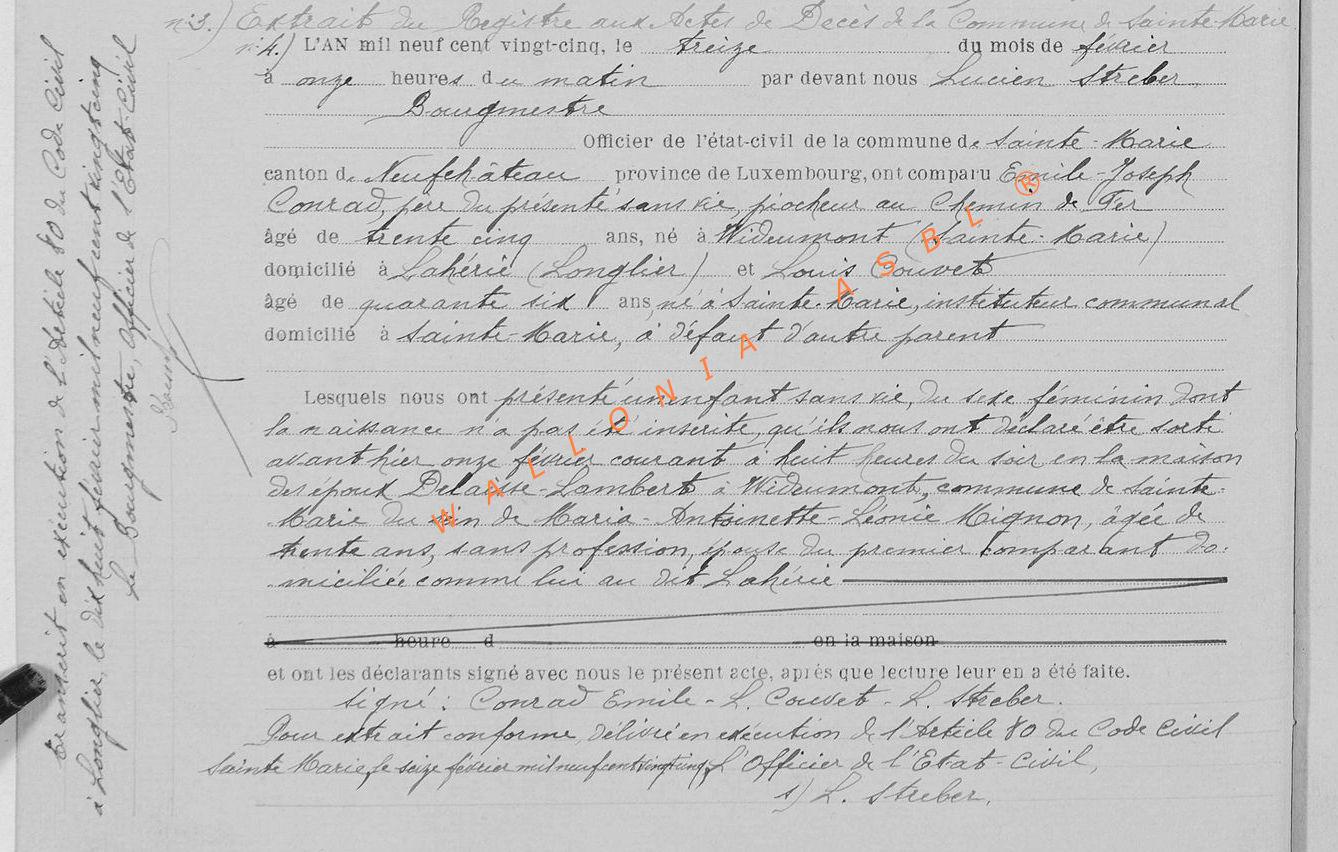 n: 3.) Extrait du Registre aux Actes de Décès de la Commune de Sainte-Marie
n: 4.) L'AN mil neuf cent vingt-cinq, le treize du mois de février
à onze heures du matin par devant nous Lucien Streber
Bourgmestre
Officier de l'état-civil de la commune de Sainte-Marie
canton de Neufchâteau province de Luxembourg, ont comparu Emile-Joseph
Conrad, père du présenté sans vie, piocheur au Chemin de Fer
âgé de trente cinq ans, né à Wideumont (Sainte-Marie)
domicilié à Lahérie (Longlier) et Louis Couvet
âgé de quarante six ans, né à Sainte-Marie, instituteur communal
domicilié à Sainte-Marie, à défaut d'autre parent
Lesquels nous ont présenté un enfant sans vie, du sexe féminin dont
la naissance n'a pas été inscrite, qu'ils nous ont déclaré être sorti
avant hier onze février courant à huit heures du soir en la maison
des époux Delaisse-Lambert à Wideumont, commune de Sainte-
Marie du sein de Maria-Antoinette-Léonie Mignon, âgée de
trente ans, sans profession, épouse du premier comparant do-
miciliée comme lui au dit Lahérie
à heure d en la maison
et ont les déclarants signé avec nous le présent acte, après que lecture leur en a été faite.
signé: Conrad Emile - L. Couvet - L. Streber.
Pour extrait conforme, délivré en exécution de l'Article 80 du Code Civil
Sainte Marie, le seize février mil neuf cent vingt cinq, L'Officier de l'Etat-Civil,
s) L. Streber.
Transcrit en exécution de l'Article 80 du Code Civil
à Longlier, le dix huit février mil neuf cent vingt cinq
Le Bourgmestre, Officier de l'Etat-Civil
WALLONIA ASBL ®